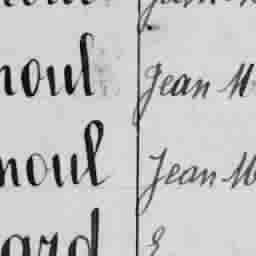 noul Jean M
noul Jean M
ard